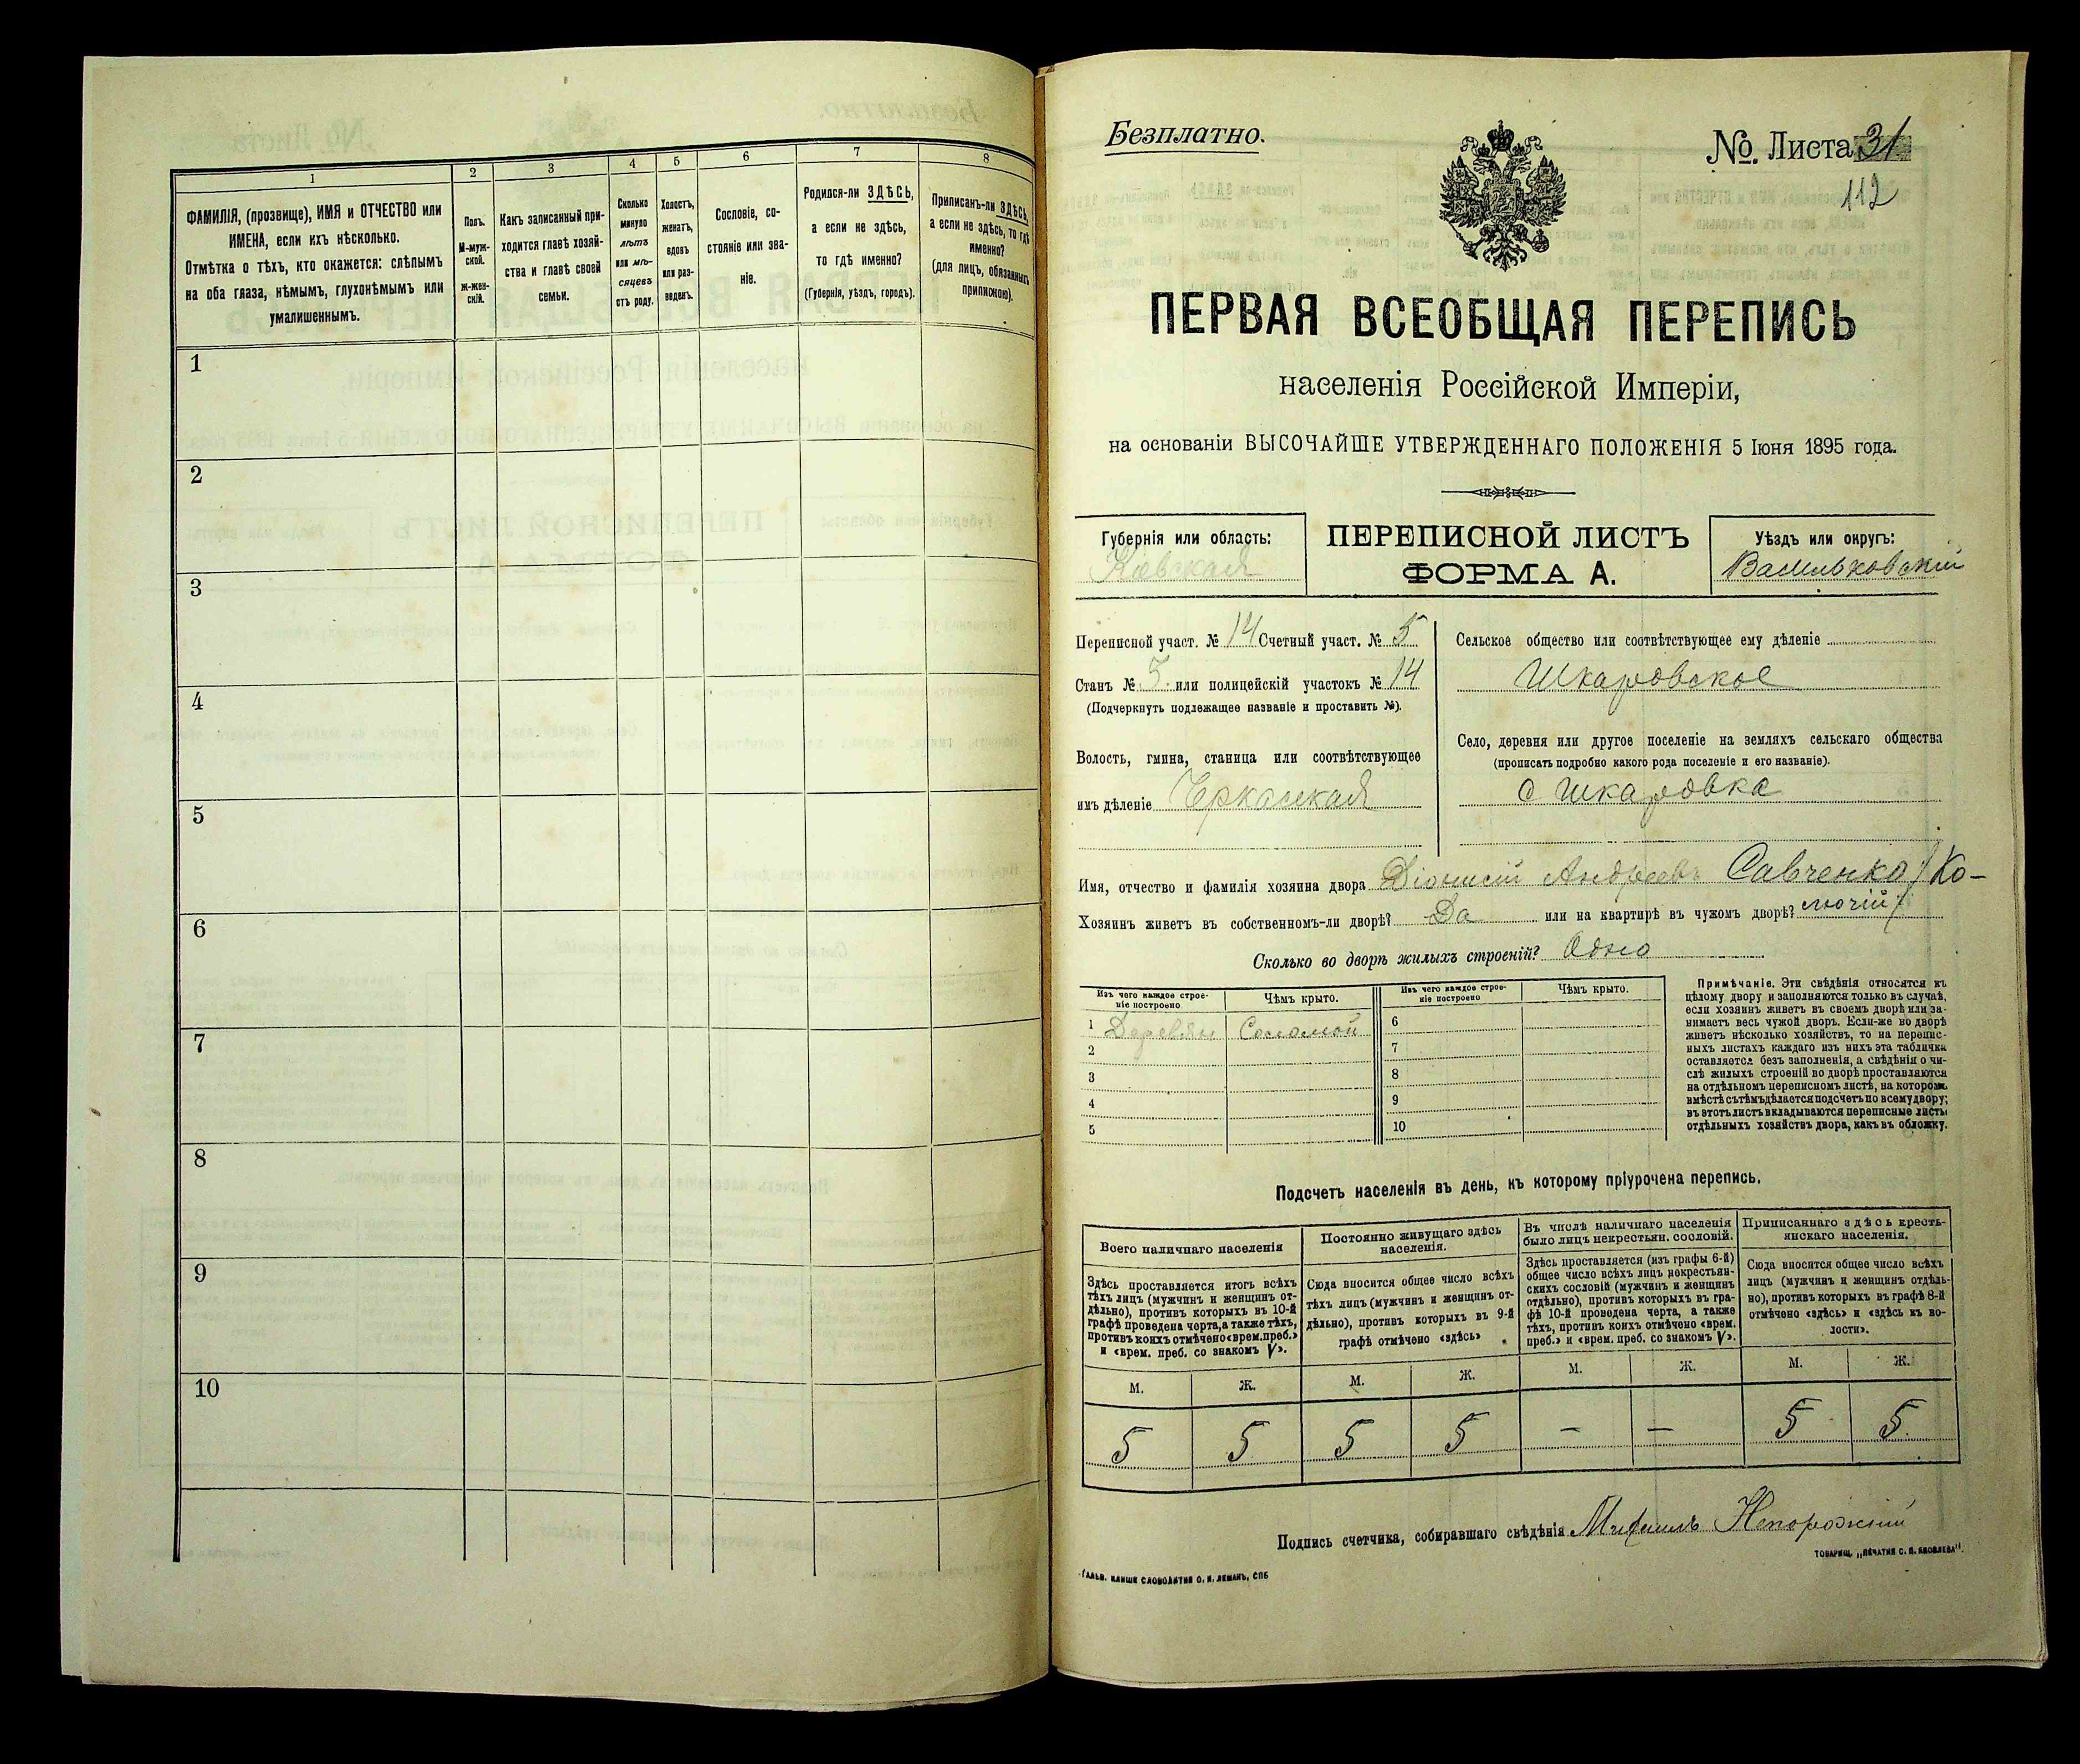 1
2
3
4
5
6
7
8
ФАМИЛІЯ, (прозвище), ИМЯ и ОТЧЕСТВО или
ИМЕНА, если ихъ нѣсколько.
Отмѣтка о тѣхъ, кто окажется: слѣпымъ
на оба глаза, нѣмымъ, глухонѣмымъ или
умалишеннымъ.
Полъ.
М-муж-
ской.
ж-жен-
скій.
Какъ записанный при-
ходится главѣ хозяй-
ства и главѣ своей
семьи.
Сколько
минуло
лѣтъ
или мѣ-
сяцевъ
отъ роду.
Холостъ,
женатъ,
вдовъ
или раз-
веденъ.
Сословіе, со-
стояніе или зва-
ніе.
Родился-ли ЗДѢСЬ,
а если не здѣсь,
то гдѣ именно?
(Губернія, уѣздъ, городъ).
Приписанъ-ли ЗДѢСЬ,
а если не здѣсь, то гдѣ
именно?
(для лицъ, обязанныхъ
припискою).
1
2
3
4
5
6
7
8
9
10
Безплатно.
№ Листа 31
112
ПЕРВАЯ ВСЕОБЩАЯ ПЕРЕПИСЬ
населенія Россійской Имперіи,
на основаніи ВЫСОЧАЙШЕ УТВЕРЖДЕННАГО ПОЛОЖЕНІЯ 5 Іюня 1895 года.
Губернія или область:
Кіевская
ПЕРЕПИСНОЙ ЛИСТЪ
ФОРМА А.
Уѣздъ или округъ:
Васильковскій
Переписной участ. № 14 Счетный участ. № 5
Станъ № 5. или полицейскій участокъ № 14
(Подчеркнуть подлежащее названіе и проставить №).
Волость, гмина, станица или соотвѣтствующее
имъ дѣленіе Черкасская
Сельское общество или соотвѣтствующее ему дѣленіе
Шкаровское
Село, деревня или другое поселеніе на земляхъ сельскаго общества
(прописать подробно какого рода поселеніе и его названіе).
с Шкаровка
Имя, отчество и фамилія хозяина двора Діонисій Андреевъ Савченко (Ко-
Хозяинъ живетъ въ собственномъ-ли дворѣ? Да или на квартирѣ въ чужомъ дворѣ? лючій)
Сколько во дворѣ жилыхъ строеній? Одно
Изъ чего каждое строе-
ніе построено
Чѣмъ крыто.
Изъ чего каждое строе-
ніе построено
Чѣмъ крыто.
1 Деревян Соломой
2
3
4
5
6
7
8
9
10
Примѣчаніе. Эти свѣдѣнія относятся къ
цѣлому двору и заполняются только въ случаѣ,
если хозяинъ живетъ въ своемъ дворѣ или за-
нимаетъ весь чужой дворъ. Если-же во дворѣ
живетъ нѣсколько хозяйствъ, то на перепис-
ныхъ листахъ каждаго изъ нихъ эта табличка
оставляется безъ заполненія, а свѣдѣнія о чи-
слѣ жилыхъ строеній во дворѣ проставляются
на отдѣльномъ переписномъ листѣ, на которомъ
вмѣстѣ съ тѣмъ дѣлается подсчетъ по всему двору;
въ этотъ листъ вкладываются переписные листы
отдѣльныхъ хозяйствъ двора, какъ въ обложку.
Подсчетъ населенія въ день, къ которому пріурочена перепись.
Всего наличнаго населенія
Постоянно живущаго здѣсь
населенія.
Въ числѣ наличнаго населенія
было лицъ некрестьян. сословій.
Приписаннаго здѣсь кресть-
янскаго населенія.
Здѣсь проставляется итогъ всѣхъ
тѣхъ лицъ (мужчинъ и женщинъ от-
дѣльно), противъ которыхъ въ 10-й
графѣ проведена черта, а также тѣхъ,
противъ коихъ отмѣчено «врем. преб.»
и «врем. преб. со знакомъ V».
Сюда вносится общее число всѣхъ
тѣхъ лицъ (мужчинъ и женщинъ от-
дѣльно), противъ которыхъ въ 9-й
графѣ отмѣчено «здѣсь»
Здѣсь проставляется (изъ графы 6-й)
общее число всѣхъ лицъ некрестьян-
скихъ сословій (мужчинъ и женщинъ
отдѣльно), противъ которыхъ въ гра-
фѣ 10-й проведена черта, а также
тѣхъ, противъ коихъ отмѣчено «врем.
преб.» и «врем. преб. со знакомъ V».
Сюда вносится общее число всѣхъ
лицъ (мужчинъ и женщинъ отдѣль-
но), противъ которыхъ въ графѣ 8-й
отмѣчено «здѣсь» и «здѣсь въ во-
лости».
М. Ж. М. Ж. М. Ж. М. Ж.
5 5 5 5 — — 5 5
Подпись счетчика, собиравшаго свѣдѣнія Михаилъ Непорожній
ТОВАРИЩ. „ПЕЧАТНЯ С. П. ЯКОВЛЕВА".
ГАЛЬВ. КЛИШЕ СЛОВОЛИТНИ О. И. ЛЕМАНЪ, СПБ